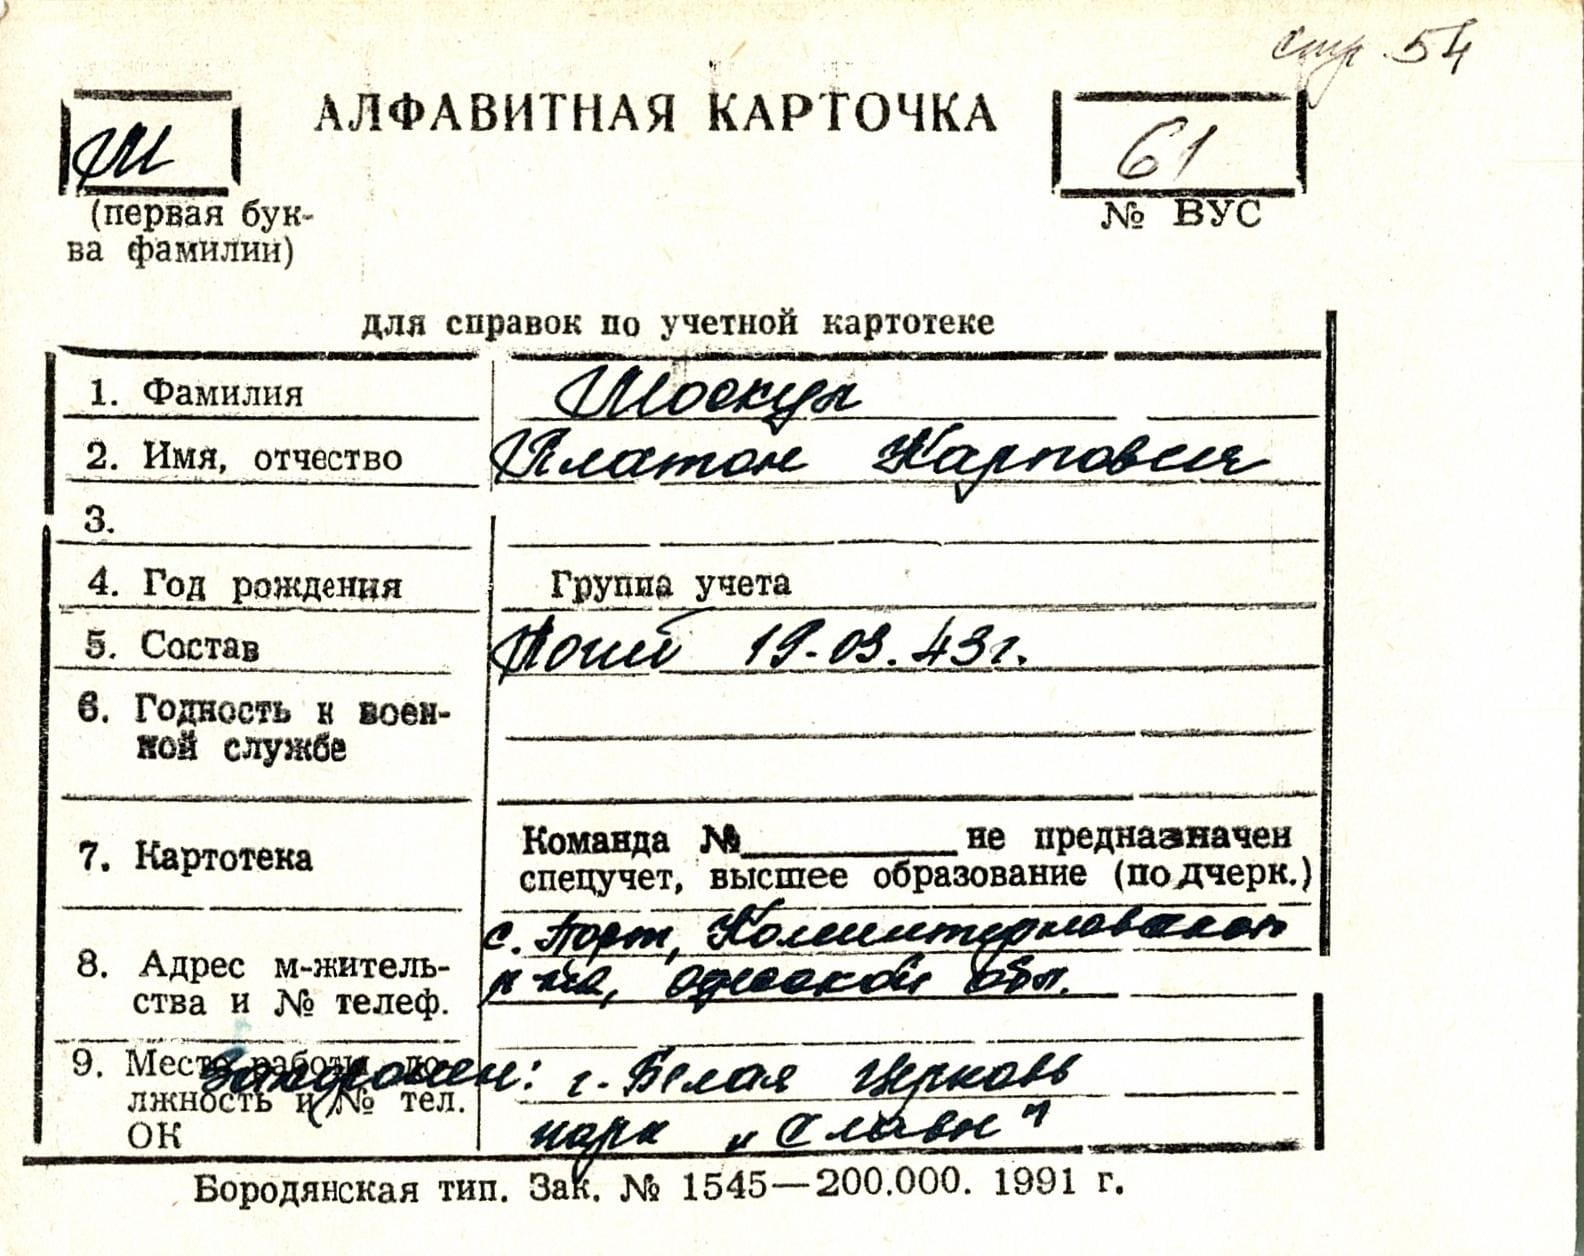 стр. 54
АЛФАВИТНАЯ КАРТОЧКА
Ш
61
(первая бук-
ва фамилии)
№ ВУС
для справок по учетной картотеке
1. Фамилия
Шоскул
2. Имя, отчество
Платон Карпович
3.
4. Год рождения
Группа учета
5. Состав
Погиб 19.03.43г.
6. Годность к воен-
ной службе
7. Картотека
Команда №_________не предназначен
спецучет, высшее образование (подчерк.)
8. Адрес м-житель-
ства и № телеф.
с. Порт, Коминтерновского
р-на, Одесской обл.
9. Место работы, до-
лжность и № тел.
ОК
Захоронен: г. Белая Церковь
парк „Славы"
Бородянская тип. Зак. № 1545—200.000. 1991 г.